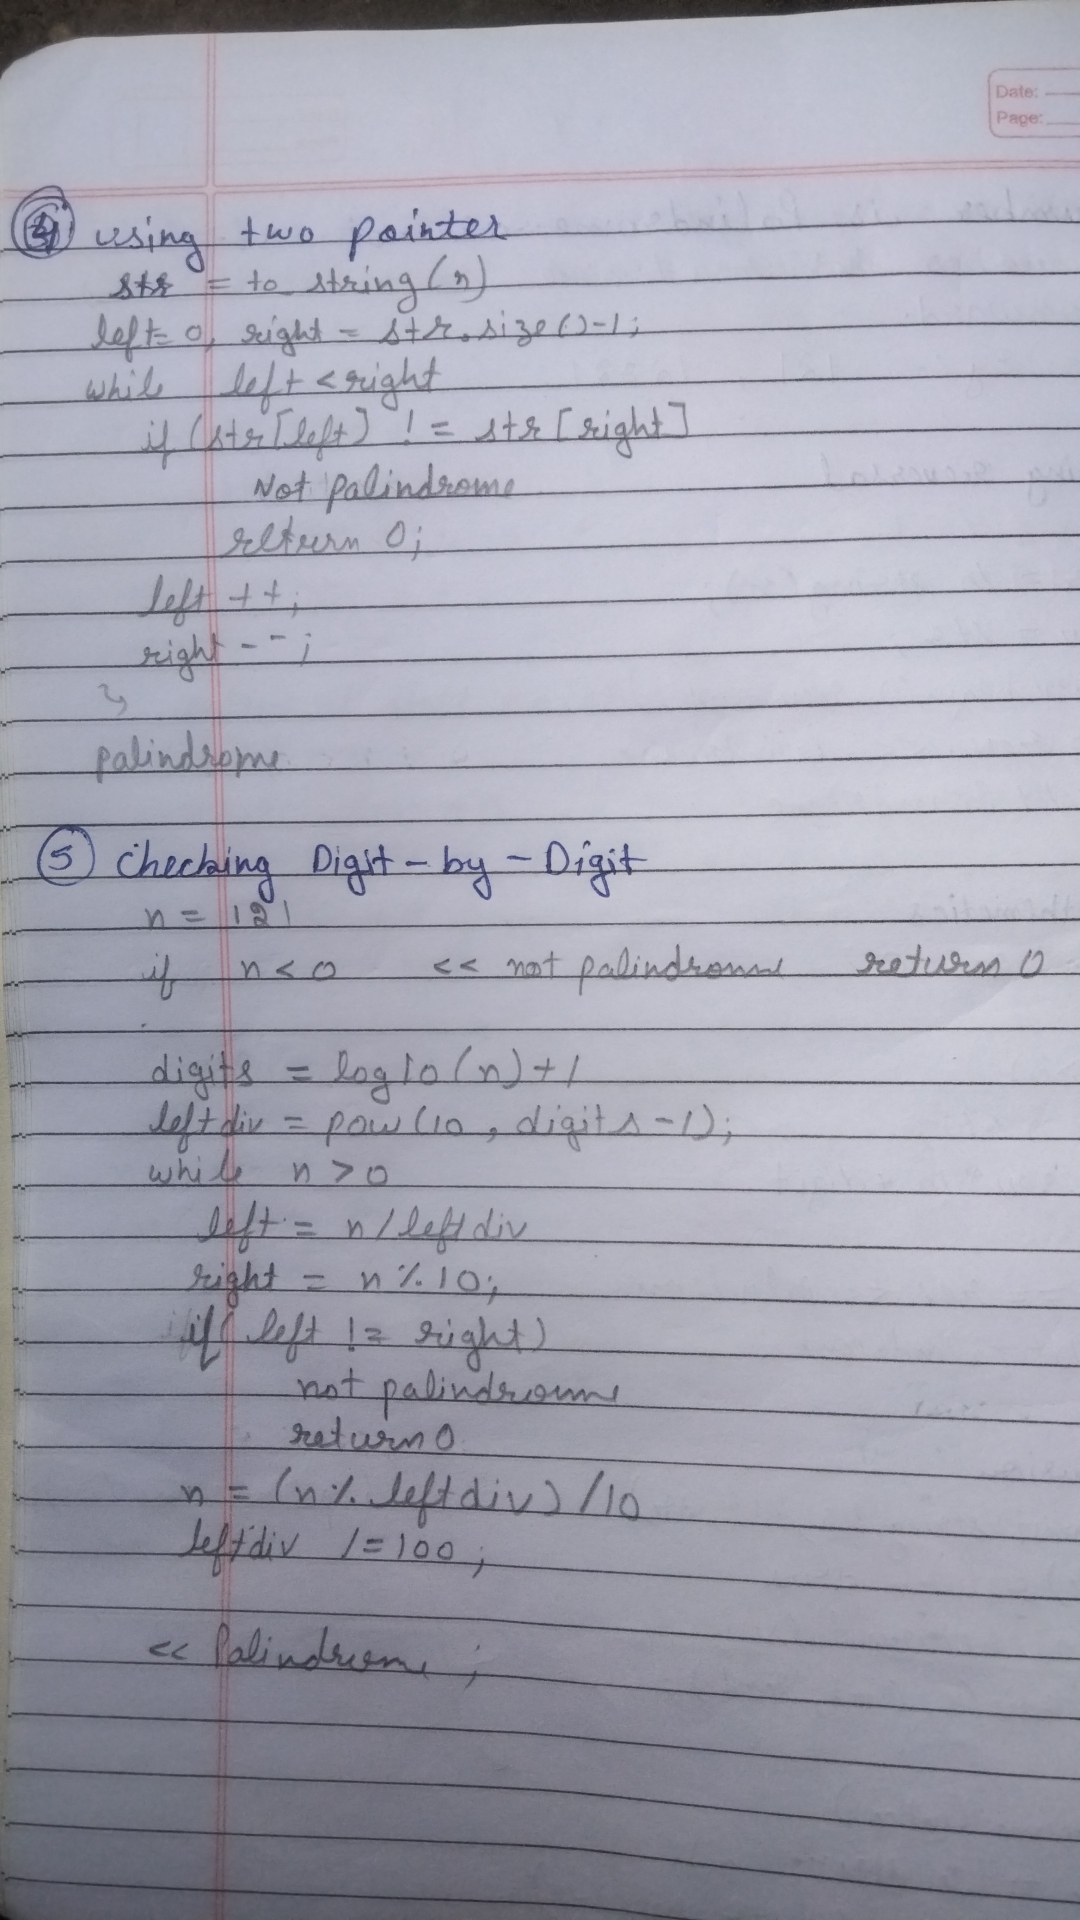 Date:
Page:
④ using two pointer
str = to_string(n)
left = 0, right = str.size()-1;
while left < right
if (str[left] != str[right]
Not palindrome
return 0;
left ++;
right --;
}
palindrome
⑤ Checking Digit-by-Digit
n = 121
if n<0 << not palindrome return 0
digits = log10(n)+1
leftdiv = pow(10, digits-1);
while n>0
left = n/leftdiv
right = n%10;
if( left != right)
not palindrome
return 0
n = (n% leftdiv)/10
leftdiv /=100;
<< Palindrome ;